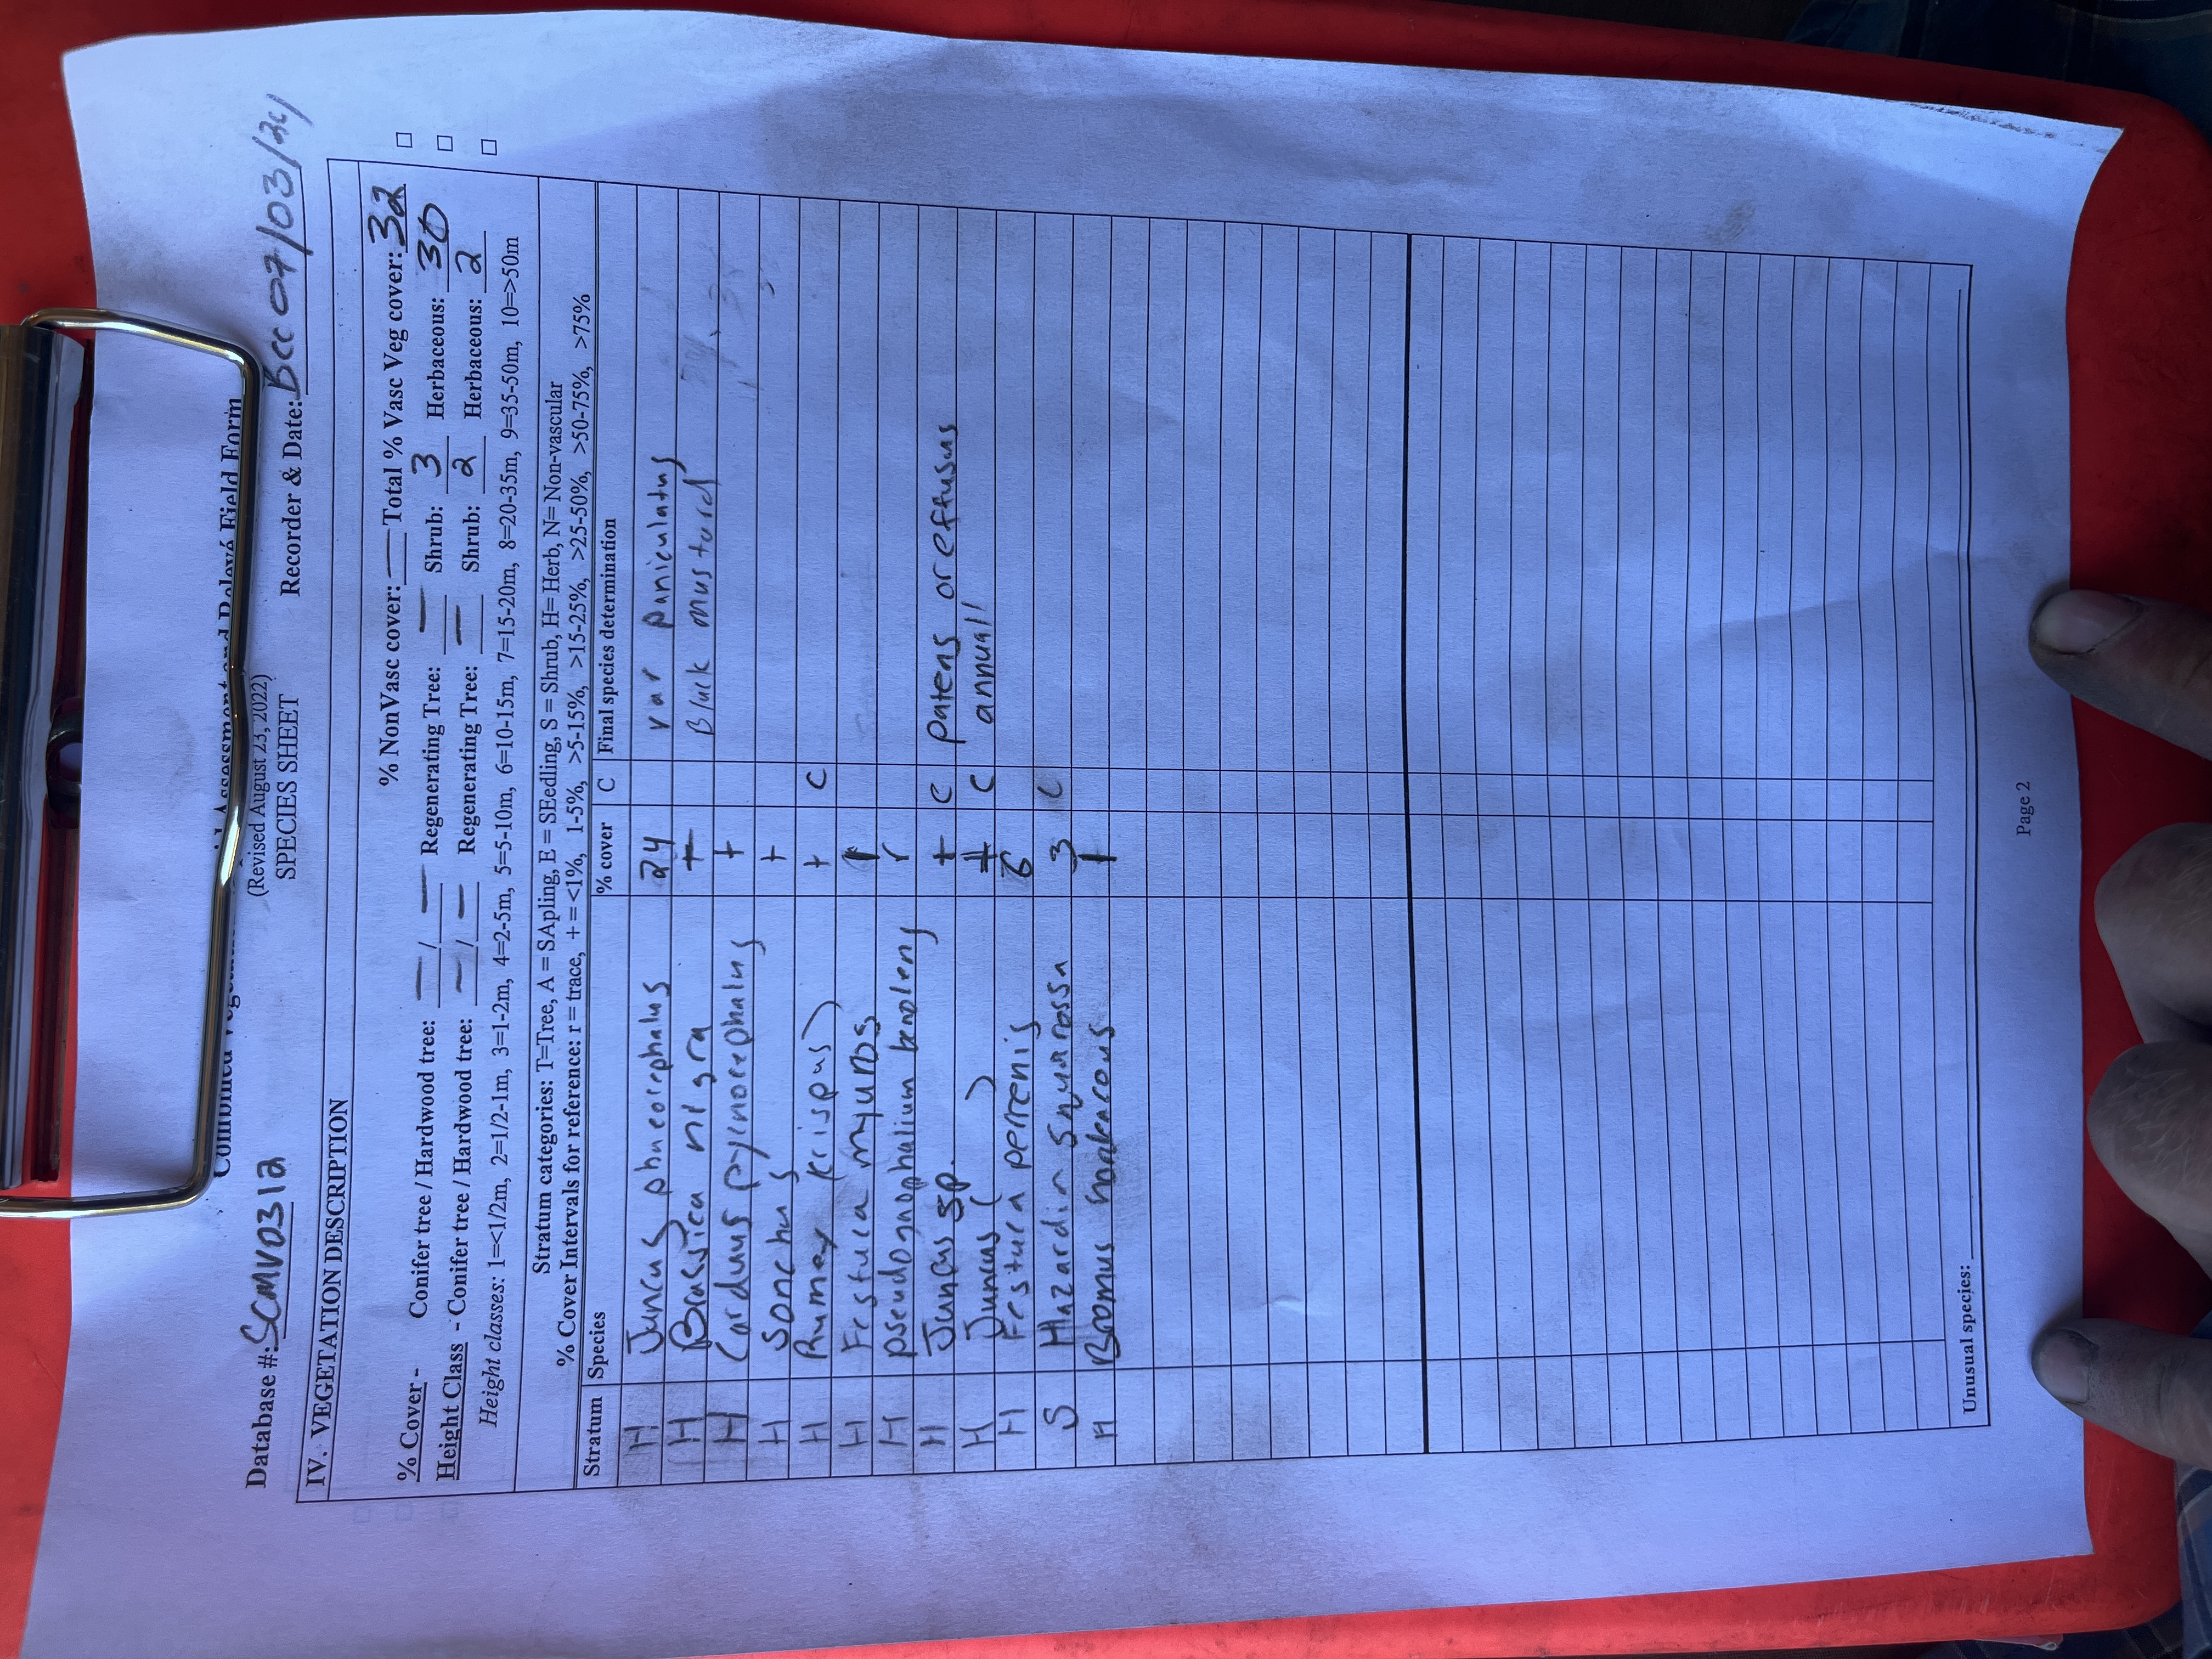 Combined Vegetation Rapid Assessment and Relevé Field Form
(Revised August 23, 2022)
SPECIES SHEET
Database #: SCMV0312 Recorder & Date: BCC 07/03/24
IV. VEGETATION DESCRIPTION
% NonVasc cover: — Total % Vasc Veg cover: 32
% Cover - Conifer tree / Hardwood tree: — / — Regenerating Tree: — Shrub: 3 Herbaceous: 30
Height Class - Conifer tree / Hardwood tree: — / — Regenerating Tree: — Shrub: 2 Herbaceous: 2
Height classes: 1=<1/2m, 2=1/2-1m, 3=1-2m, 4=2-5m, 5=5-10m, 6=10-15m, 7=15-20m, 8=20-35m, 9=35-50m, 10=>50m
Stratum categories: T=Tree, A = SApling, E = SEedling, S = Shrub, H= Herb, N= Non-vascular
% Cover Intervals for reference: r = trace, + = <1%, 1-5%, >5-15%, >15-25%, >25-50%, >50-75%, >75%
Stratum Species % cover C Final species determination
H Juncus phaeocephalus 24 var paniculatus
H Brassica nigra + Black mustard
H Carduus pycnocephalus +
H Sonchus +
H Rumex (crispus) + C
H Festuca myuros 1
H pseudognaphalium benolens r
H Juncus sp. + C patens or effusus
H Juncus ( ) + C annual!
H Festuca perrenis 6
S Hazardia squarossa 3 C
H Bromus hordeaceous 1
Unusual species:
Page 2